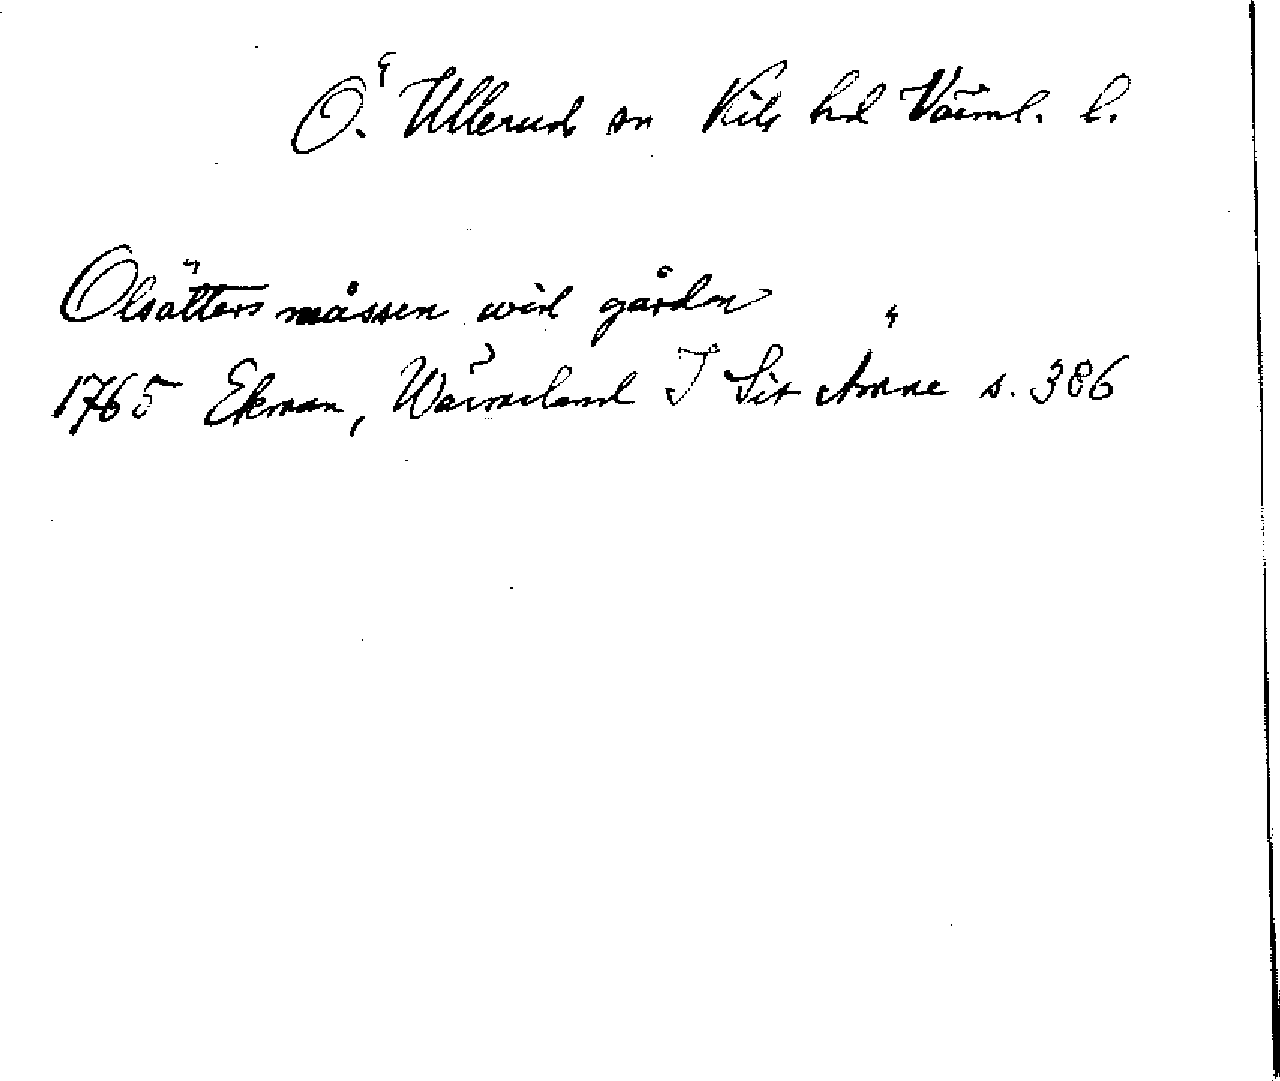 Ö. Ullerud sn Kils hd Värml. l.
Olsätters måssen wid gården
1765 Ekman, Wärmeland I Sitt Ämne s. 386